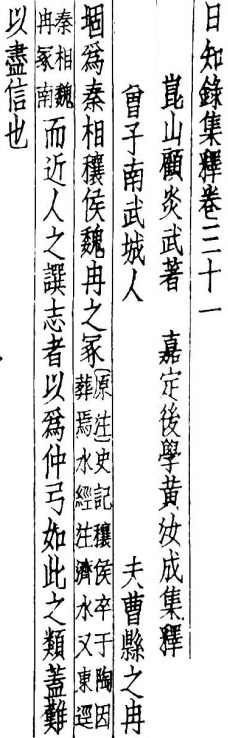 日知錄集釋卷三十一
崑山顧炎武著　嘉定後學黃汝成集釋
曾子南武城人　夫曹縣之冉
堌爲秦相穰侯魏冉之冢〔原注〕史記穰侯卒于陶因葬焉水經注濟水又東逕
秦相魏冉冢南而近人之譔志者以爲仲弓如此之類蓋難
以盡信也